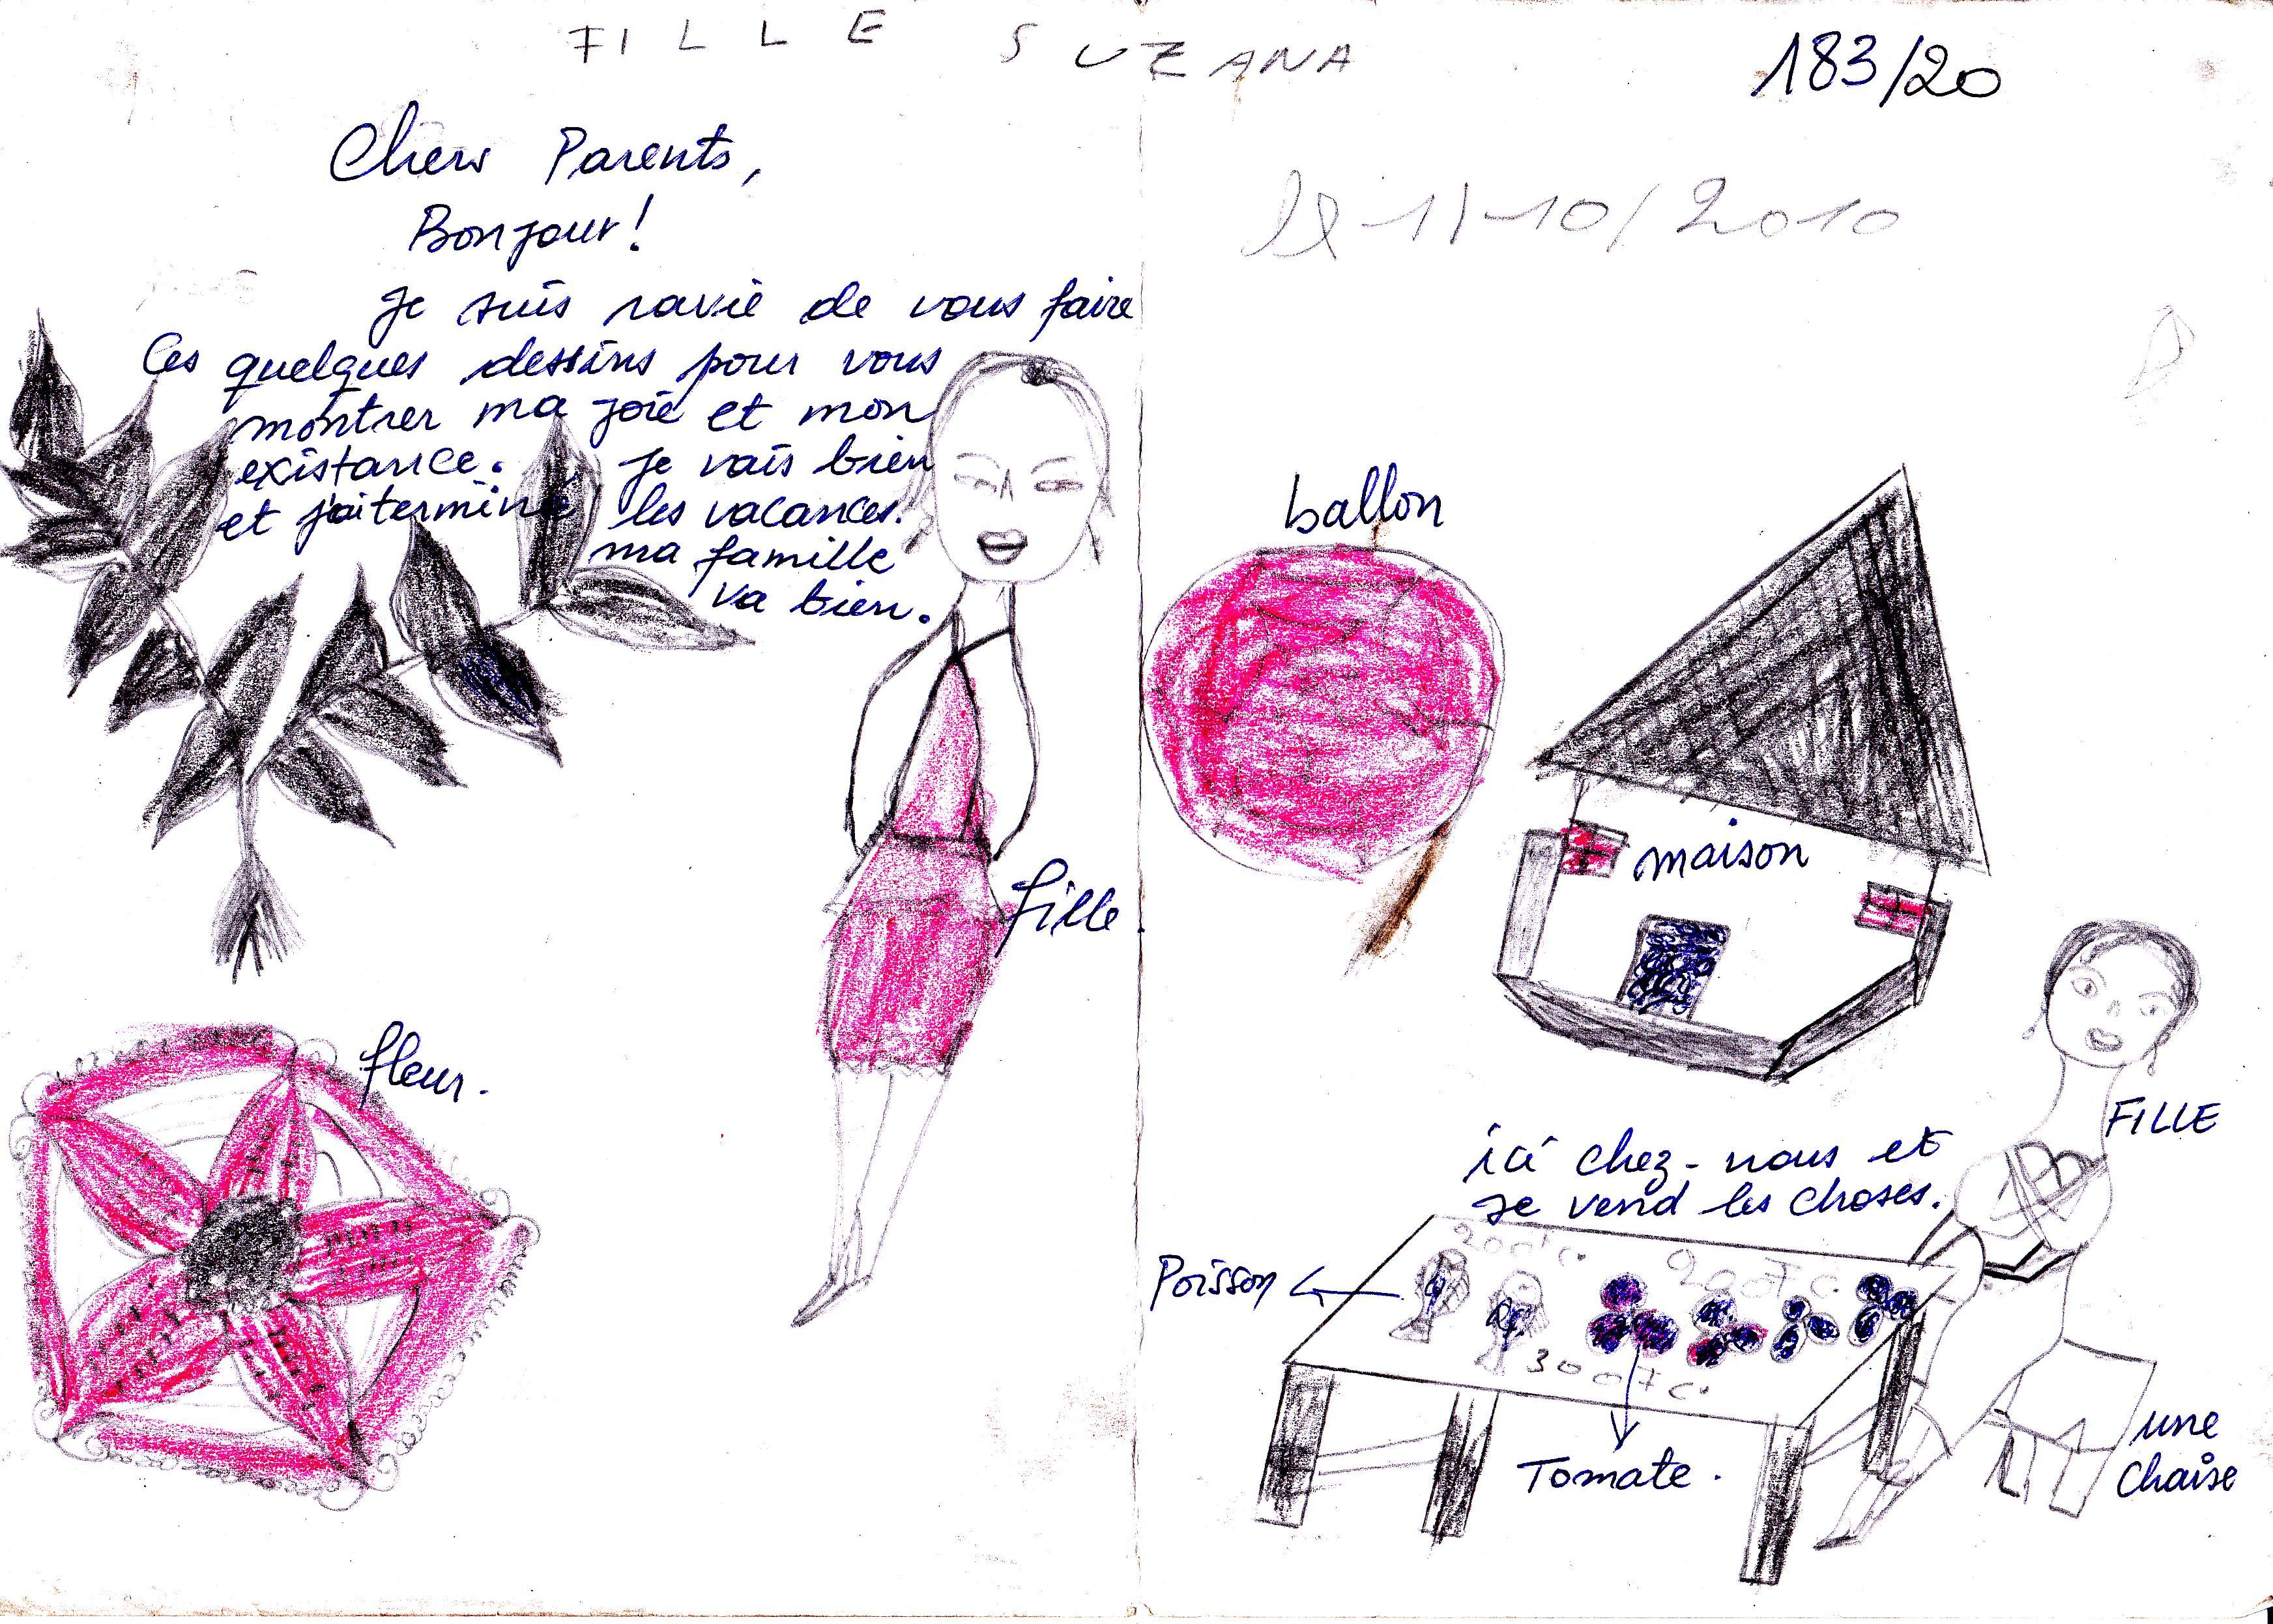 FILLE SUZANA
183/20
Chers Parents,
Bonjour!
le 11-10/2010
Je suis ravie de vous faire
Ces quelques dessins pour vous
montrer ma joie et mon
existance. Je vais bien
et j'ai terminé les vacances.
ma famille
va bien.
ballon
maison
fille.
fleur.
FILLE
ici chez-nous et
je vend les choses.
200Fc.
200Fc.
Poisson
300Fc.
Tomate.
une
chaise